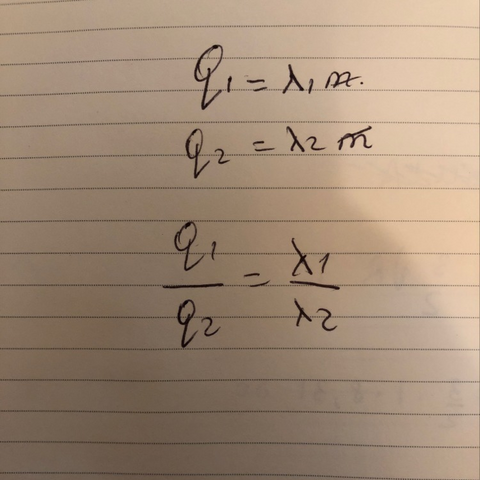 q₁ = λ₁ m.
q₂ = λ₂ m
q₁ / q₂ = λ₁ / λ₂